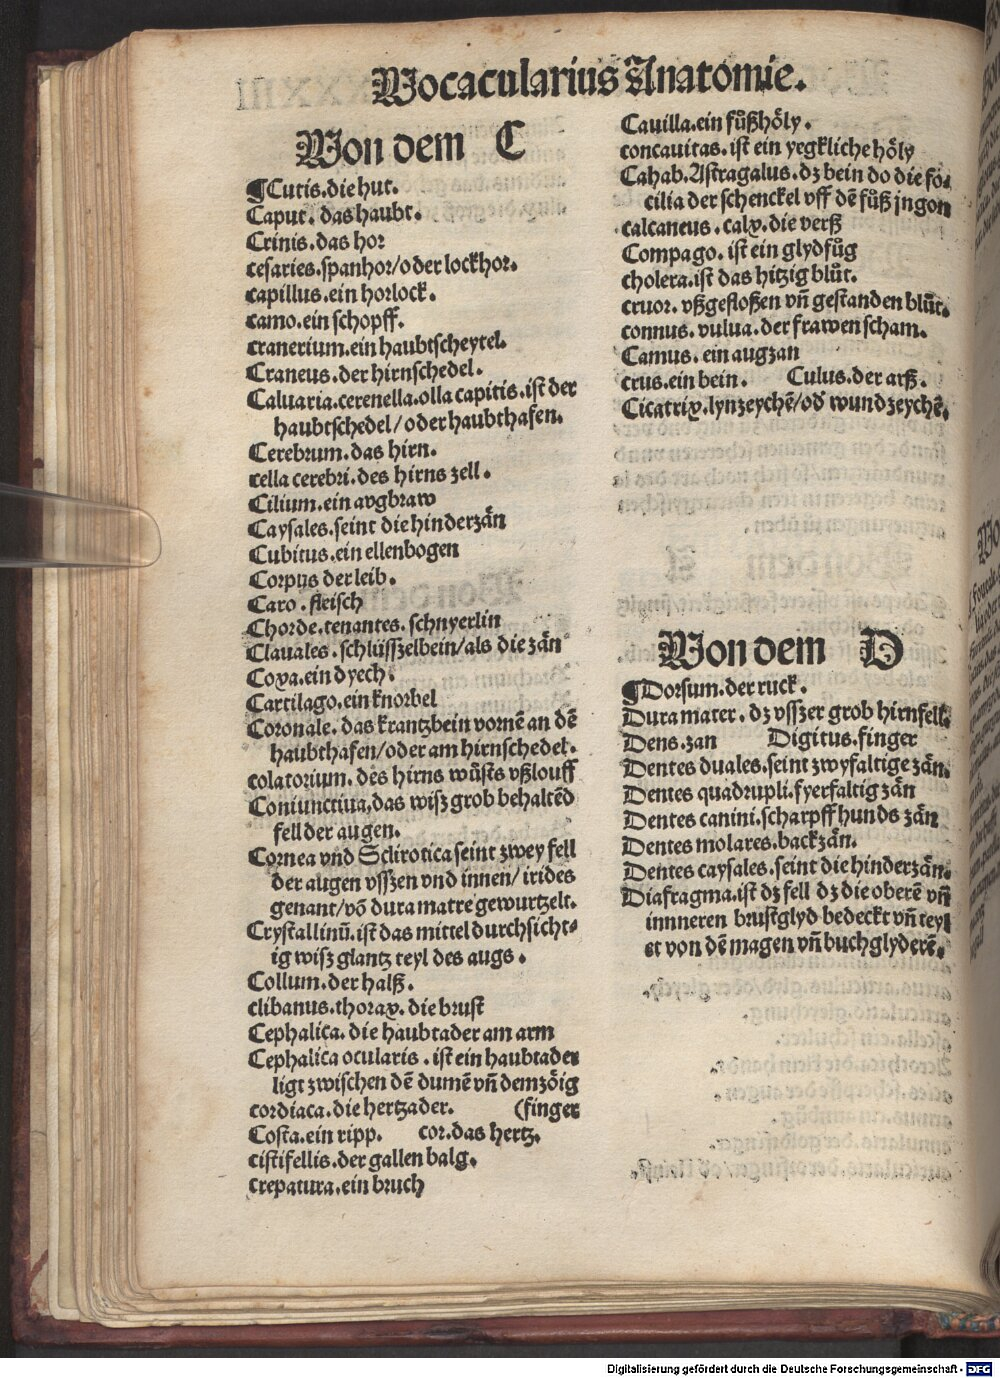 Vocacularius Anatomie.
Von dem C
¶Cutis.die hut.
Caput. das haubt.
Crinis.das hor
cesaries.spanhor/oder lockhor.
capillus.ein horlock.
camo.ein schopff.
cranerium.ein haubtscheytel.
Craneus.der hirnschedel.
Caluaria.cerenella.olla capitis.ist der
haubtschedel/oder haubthafen.
Cerebrum.das hirn.
cella cerebri.des hirns zell.
Cilium.ein augbraw
Caysales.seint die hinderzän
Cubitus.ein ellenbogen
Corpus der leib.
Caro.fleisch
Chorde.tenantes.schnyerlin
Clauales.schlüsszelbein/als die zän
Coxa.ein dyech.
Cartilago.ein knorbel
Coronale.das krantzbein vornē an dē
haubthafen/oder am hirnschedel.
colatorium.des hirns wůsts vßlouff
Coniunctiua.das wisz grob behaltēd
fell der augen.
Cornea vnd Sclirotica seint zwey fell
der augen vsszen vnd innen/irides
genant/vō dura matre gewurtzelt.
Crystallinū.ist das mittel durchsicht⸗
ig wisz glantz teyl des augs.
Collum.der halß.
clibanus.thorax.die brust
Cephalica.die haubtader am arm
Cephalica ocularis.ist ein haubtader
ligt zwischen dē dumē vñ dem zöig
cordiaca.die hertzader. (finger
Costa.ein ripp. cor.das hertz.
cistifellis.der gallen balg.
crepatura.ein bruch
Cauilla.ein fůßhöly.
concauitas.ist ein yegkliche höly
Cahab.Astragalus.dz bein do die fo⸗
cilia der schenckel vff dē fůß jngon
calcaneus.calx.die verß
Compago.ist ein glydfůg
cholera.ist das hitzig blůt.
cruor.vßgeflossen vñ gestanden blůt.
connus.vulua.der frawen scham.
Camus.ein augzan
crus.ein bein. Culus.der arß.
Cicatrix.lynzeychē/od̕ wundzeychē.
Von dem D
¶Dorsum.der ruck.
Dura mater.dz vsszer grob hirnfell.
Dens.zan Digitus.finger
Dentes duales.seint zwyfaltige zän.
Dentes quadrupli.fyerfaltig zän
Dentes canini.scharpff hunds zän
Dentes molares.backzän.
Dentes caysales.seint die hinderzän.
Diafragma.ist dz fell dz die oberē vñ
innneren brustglyd bedeckt vñ teyl
et von dē magen vñ buchglyderē.
Digitalisierung gefördert durch die Deutsche Forschungsgemeinschaft - DFG